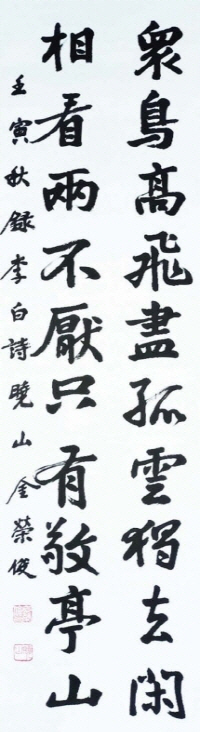 衆鳥高飛盡孤雲獨去閑
相看兩不厭只有敬亭山
壬寅秋録李白詩曉山金榮俊